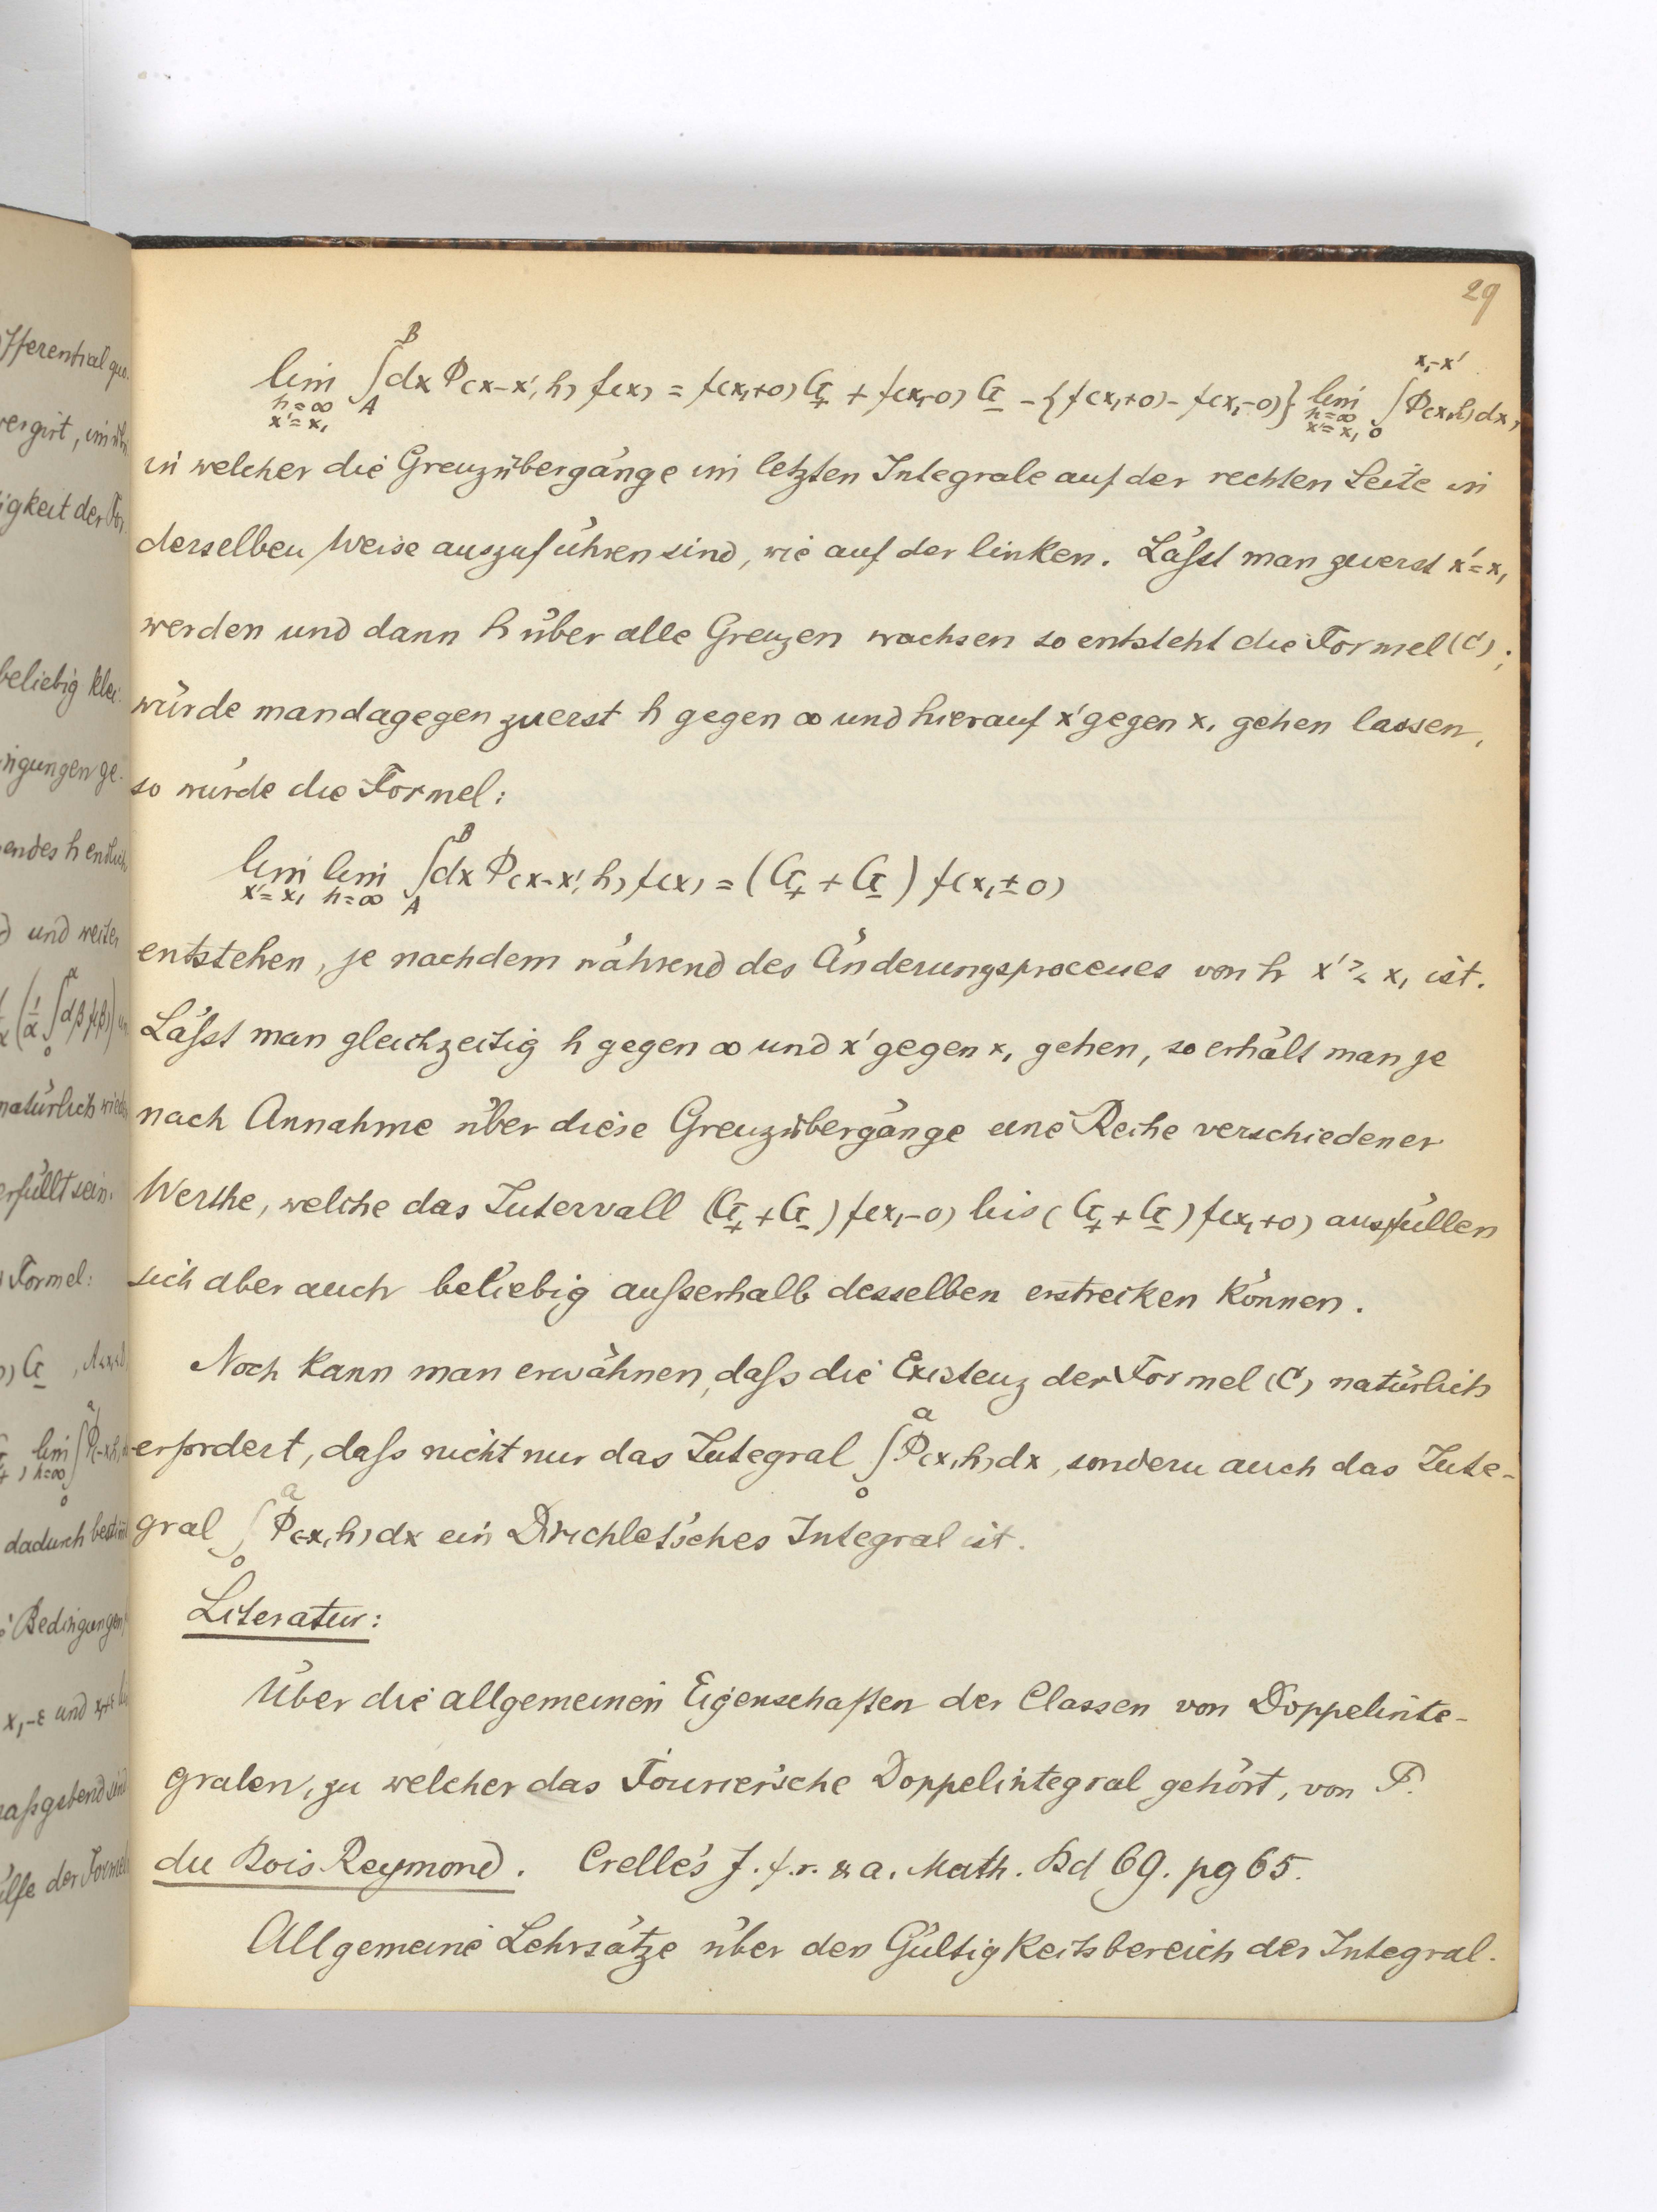 29
lim_{h=∞, x'=x₁} ∫_A^B dx Φ(x-x', h) f(x) = f(x₁+0) G₊ + f(x₁-0) G₋ - {f(x₁+0) - f(x₁-0)} lim_{h=∞, x'=x₁} ∫_0^{x₁-x'} Φ(x,h) dx,
in welcher die Grenzübergänge im letzten Integrale auf der rechten Seite in
derselben Weise auszuführen sind, wie auf der linken. Läſst man zuerst x'=x₁
werden und dann h über alle Grenzen wachsen so entsteht die Formel (C);
würde man dagegen zuerst h gegen ∞ und hierauf x' gegen x₁ gehen lassen,
so würde die Formel:
lim_{x'=x₁} lim_{h=∞} ∫_A^B dx Φ(x-x', h) f(x) = (G₊ + G₋) f(x₁±0)
entstehen, je nachdem während des Änderungsprocesses von h x' ≷ x₁ ist.
Läſst man gleichzeitig h gegen ∞ und x' gegen x₁ gehen, so erhält man je
nach Annahme über diese Grenzübergänge eine Reihe verschiedener
Werthe, welche das Intervall (G₊ + G₋) f(x₁-0) bis (G₊ + G₋) f(x₁+0) ausfüllen
sich aber auch beliebig auſserhalb desselben erstrecken können.
Noch kann man erwähnen, daſs die Existenz der Formel (C) natürlich
erfordert, daſs nicht nur das Integral ∫_0^a Φ(x,h) dx, sondern auch das Inte-
gral ∫_0^a Φ(-x,h) dx ein Dirichlet'sches Integral ist.
Literatur:
Über die allgemeinen Eigenschaften der Classen von Doppelinte-
gralen, zu welcher das Fourier'sche Doppelintegral gehört, von P.
du Bois Reymond. Crelle's J. f. r. & a. Math. Bd 69. pg 65.
Allgemeine Lehrsätze über den Gültigkeitsbereich der Integral-